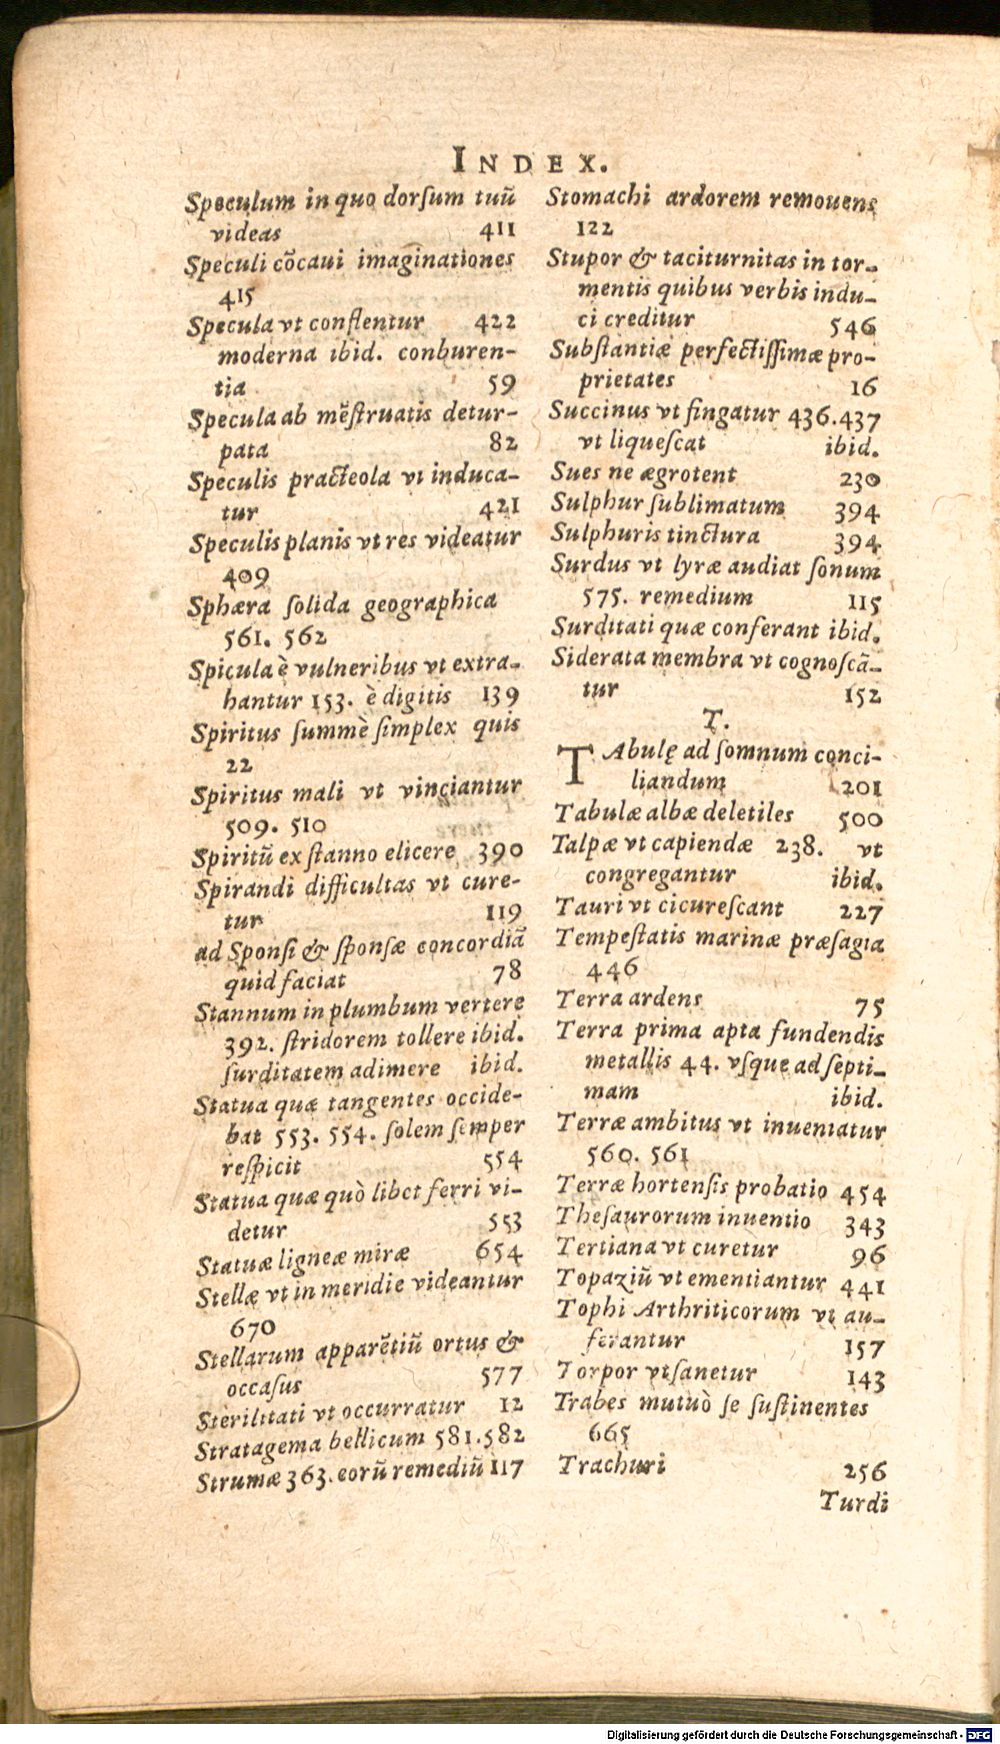 INDEX.
Speculum in quo dorſum tuũ
videas 411
Speculi cõcaui imaginationes
415
Specula vt conflentur 422
moderna ibid. conburen-
tia 59
Specula ab mẽſtruatis detur-
pata 82
Speculis practeola vt induca-
tur 421
Speculis planis vt res videatur
409
Sphæra ſolida geographica
561. 562
Spicula è vulneribus vt extra-
hantur 153. è digitis 139
Spiritus ſummè ſimplex quis
22
Spiritus mali vt vinciantur
509. 510
Spiritũ ex ſtanno elicere 390
Spirandi difficultas vt cure-
tur 119
ad Sponſi & ſponſæ concordiã
quid faciat 78
Stannum in plumbum vertere
392. ſtridorem tollere ibid.
ſurditatem adimere ibid.
Statua quæ tangentes occide-
bat 553. 554. ſolem ſemper
reſpicit 554
Statua quæ quò libet ferri vi-
detur 553
Statuæ ligneæ miræ 654
Stellæ vt in meridie videantur
670
Stellarum apparẽtiũ ortus &
occaſus 577
Sterilitati vt occurratur 12
Stratagema bellicum 581.582
Strumæ 363. eorũ remediũ 117
Stomachi ardorem remouens
122
Stupor & taciturnitas in tor-
mentis quibus verbis indu-
ci creditur 546
Subſtantiæ perfectiſſimæ pro-
prietates 16
Succinus vt fingatur 436.437
vt liqueſcat ibid.
Sues ne ægrotent 230
Sulphur ſublimatum 394
Sulphuris tinctura 394
Surdus vt lyræ audiat ſonum
575. remedium 115
Surditati quæ conferant ibid.
Siderata membra vt cognoſcã-
tur 152
T.
TAbulę ad ſomnum conci-
liandum 201
Tabulæ albæ deletiles 500
Talpæ vt capiendæ 238. vt
congregantur ibid.
Tauri vt cicureſcant 227
Tempeſtatis marinæ præſagia
446
Terra ardens 75
Terra prima apta fundendis
metallis 44. vſque ad ſepti-
mam ibid.
Terræ ambitus vt inueniatur
560. 561
Terræ hortenſis probatio 454
Theſaurorum inuentio 343
Tertiana vt curetur 96
Topaziũ vt ementiantur 441
Tophi Arthriticorum vt au-
ferantur 157
Torpor vt ſanetur 143
Trabes mutuò ſe ſuſtinentes
665
Trachuri 256
Turdi
Digitalisierung gefördert durch die Deutsche Forschungsgemeinschaft - DFG